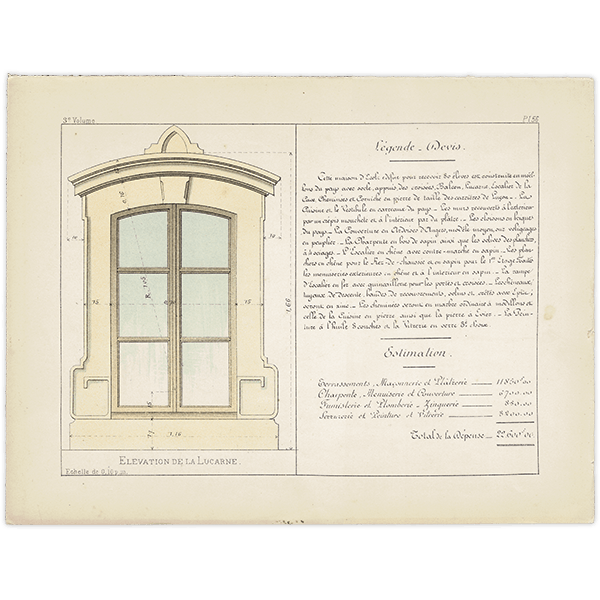 3e Volume
Pl. 56
Légende - Devis.
Cette maison d'école édifiée pour recevoir 80 élèves est construite en moël-
lons du pays avec socle, appuis des croisées, Balcon, Lucarne, Escalier de la
Cave, Cheminées et Corniche en pierre de taille des carrières de
Cuisine et le Vestibule en carreaux du pays - Les murs recouverts à l'extérieur
par un crépis moucheté et à l'intérieur par du plâtre - Les cloisons en briques
du pays - La Couverture en Ardoises d'Angers, modèle moyen, sur voligeages
en peuplier - La Charpente en bois de sapin ainsi que les solives des planchers,
à 3 sciages - L'Escalier en chêne avec contre-marche en sapin - Les plan-
chers en chêne pour le Rez-de-chaussée et en sapin pour le 1er Etage. Toutes
les menuiseries extérieures en chêne et à l'intérieur en sapin - La rampe
d'Escalier en fer avec quincaillerie pour les portes et croisées - Les chéneaux,
tuyaux de descente, bandes de recouvrements, solins et arêtes avec Epis,
seront en zinc - Les cheminées seront en marbre ordinaire à modillons et
celle de la Cuisine en pierre ainsi que la pierre à Evier - La Pein-
ture à l'huile 3 couches et la Vitrerie en verre
Estimation.
Terrassements, Maçonnerie et Plâtrerie — 11850f00
Charpente, Menuiserie et Couverture — 6700.00
Fumisterie et Plomberie - Zinguerie — 850.00
Serrurerie et Peinture et Vitrerie — 3200.00
Total de la dépense — 22600f00
15
15
1,66
1,10
ELEVATION DE LA LUCARNE.
Echelle de 0,10 p. m.